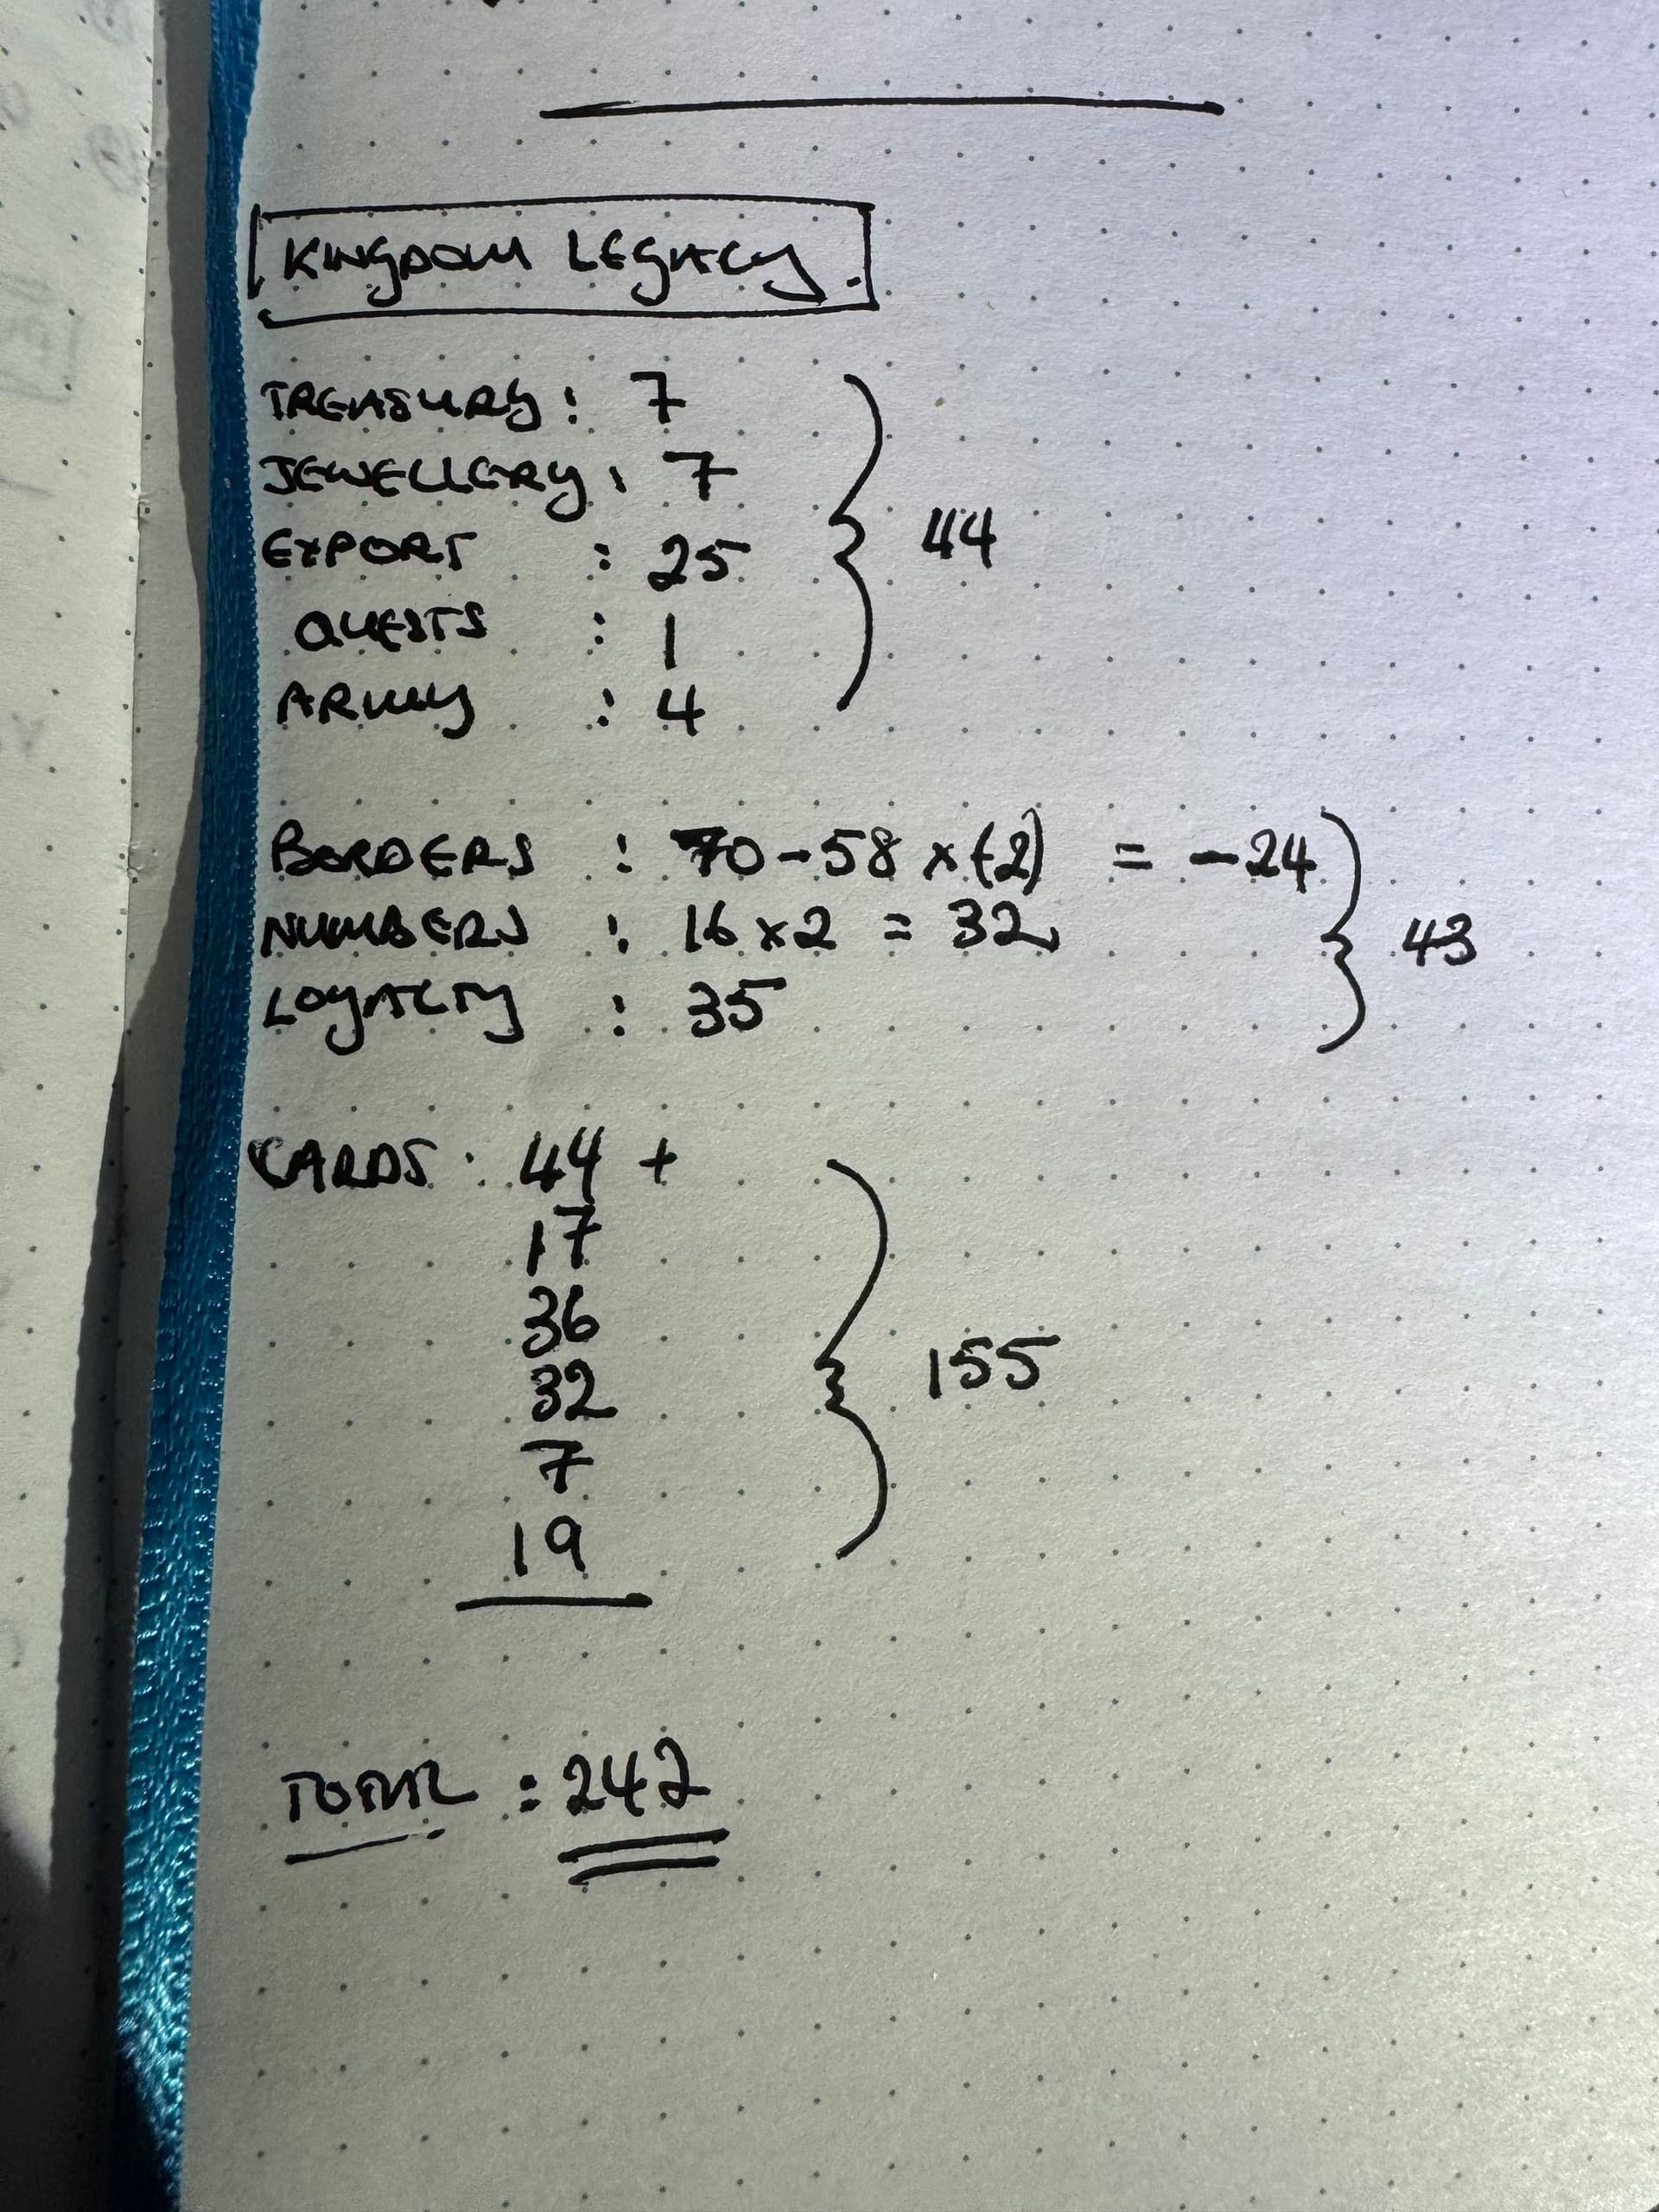 KINGDOM LEGACY.
TREASURY: 7
JEWELLERY: 7
EXPORT : 25
QUESTS : 1
ARMY : 4
44
BORDERS : 70-58 x (-2) = -24
NUMBERS : 16 x 2 = 32
LOYALTY : 35
43
CARDS: 44 +
17
36
32
7
19
155
TOTAL : 242